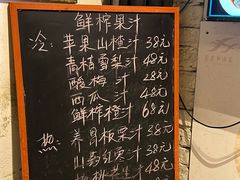 鲜榨果汁
冷: 苹果山楂汁 38元
青桔雪梨汁 48元
酸梅汁 28元
西瓜汁 48元
鲜榨橙汁 68元
热: 养胃板栗汁 38元
山药红枣汁 48元
核桃花生汁